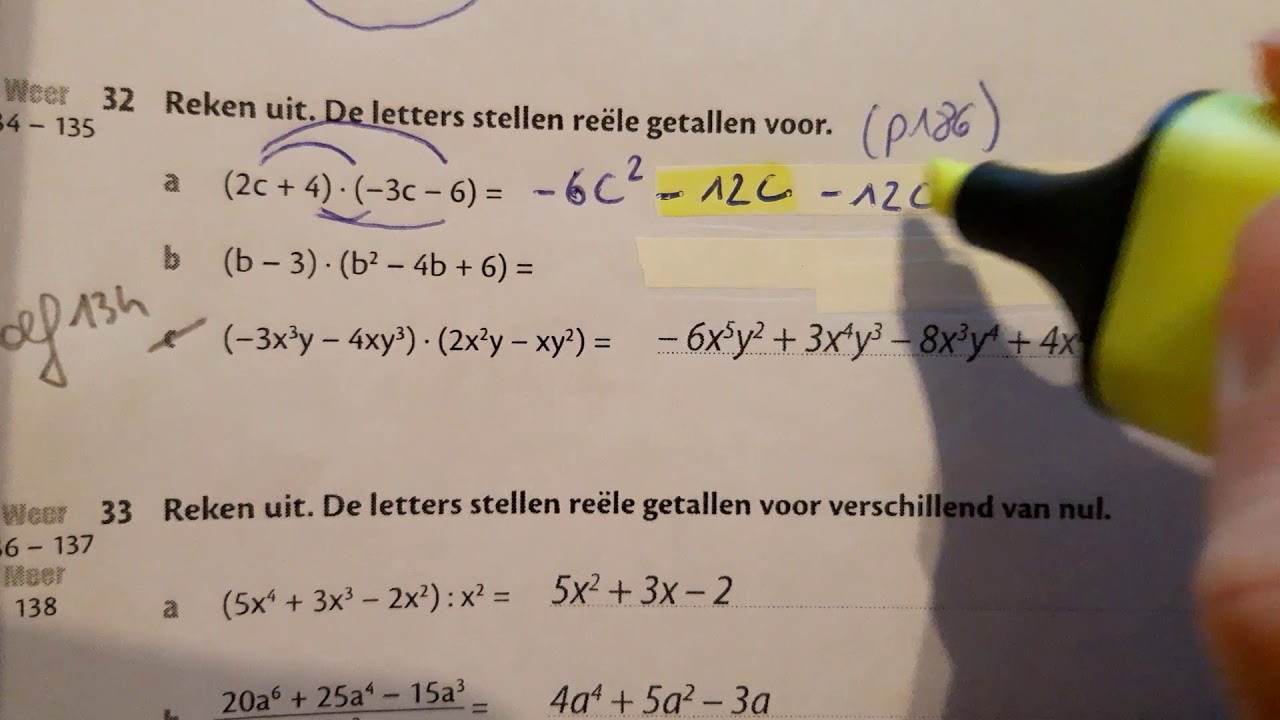 Weer 32 Reken uit. De letters stellen reële getallen voor. (p186)
34 – 135
a (2c + 4) · (−3c − 6) = − 6c² − 12c − 12c
b (b − 3) · (b² − 4b + 6) =
13h
(−3x³y − 4xy³) · (2x²y − xy²) = − 6x⁵y² + 3x⁴y³ − 8x³y⁴ + 4x
Weer 33 Reken uit. De letters stellen reële getallen voor verschillend van nul.
36 – 137
Meer
138
a (5x⁴ + 3x³ − 2x²) : x² = 5x² + 3x − 2
20a⁶ + 25a⁴ − 15a³ = 4a⁴ + 5a² − 3a